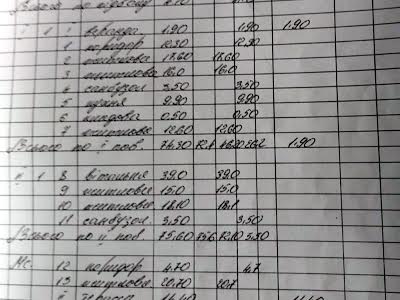 Всього по підвалу
1 1 веранда 1.90 1.90 1.90
1 коридор 12.30 12.30
2 житлова 17.60 17.60
3 житлова 16.0 16.0
4 санвузол 3,50 3,50
5 кухня 9.90 9.90
6 кладова 0,50 0,50
7 житлова 12.60 12.60
Всього по I пов. 74,30 1.90
II 1 8 вітальня 39.0 39.0
9 житлова 15.0 15.0
10 житлова 18.10 18.1
11 санвузол 3,50 3,50
Всього по II пов. 75.60
Мс. 12 коридор 4.70 4.7
13 житлова 20.70 20.7
тераса